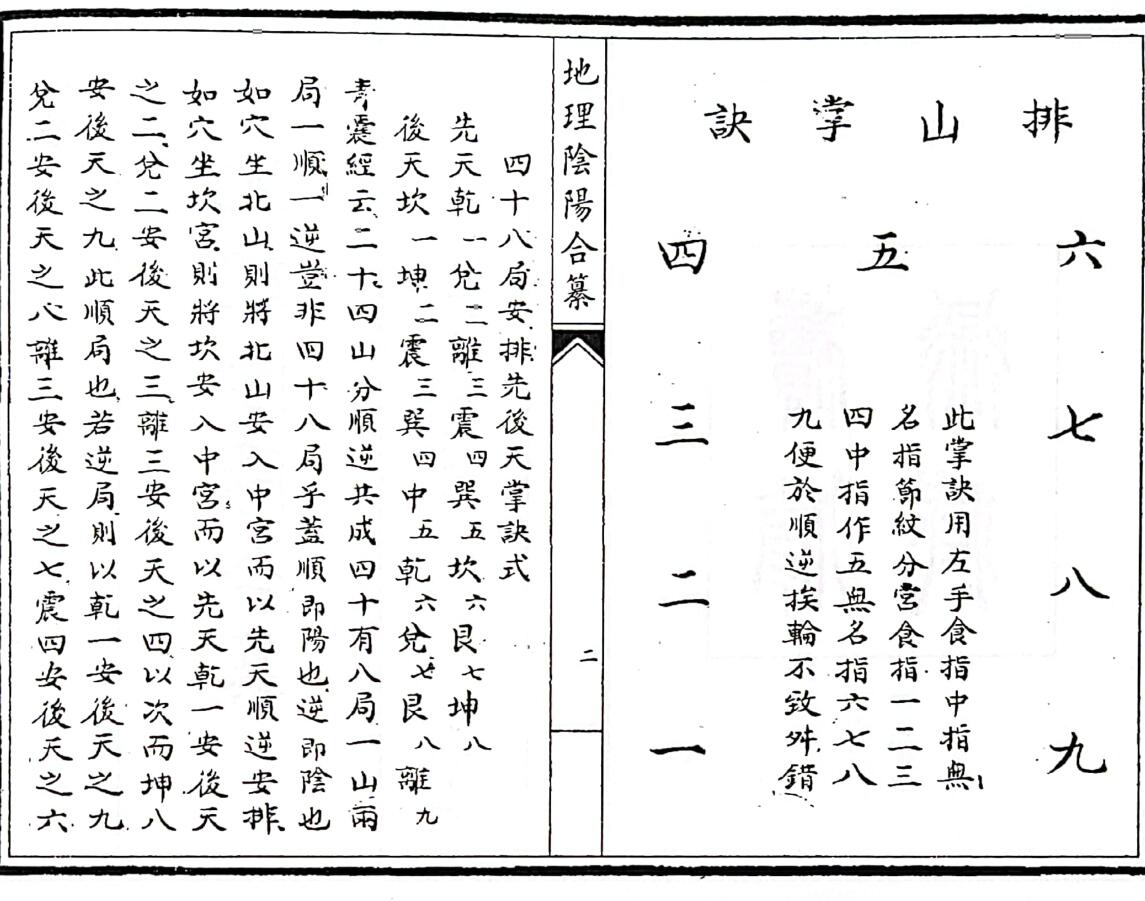 排山掌訣
六七八九
五
四三二一
此掌訣用左手食指中指無
名指節紋分宮食指一二三
四中指作五無名指六七八
九便於順逆挨輪不致舛錯
地理陰陽合纂
二
四十八局安排先後天掌訣式
先天乾一兌二離三震四巽五坎六艮七坤八
後天坎一坤二震三巽四中五乾六兌七艮八離九
青囊經云二十四山分順逆共成四十有八局一山兩
局一順一逆豈非四十八局乎蓋順即陽也逆即陰也
如穴坐北山則將北山安入中宮而以先天順逆安排
如穴坐坎宮則將坎安入中宮而以先天乾一安後天
之二兌二安後天之三離三安後天之四以次而坤八
安後天之九此順局也若逆局則以乾一安後天之九
兌二安後天之八離三安後天之七震四安後天之六